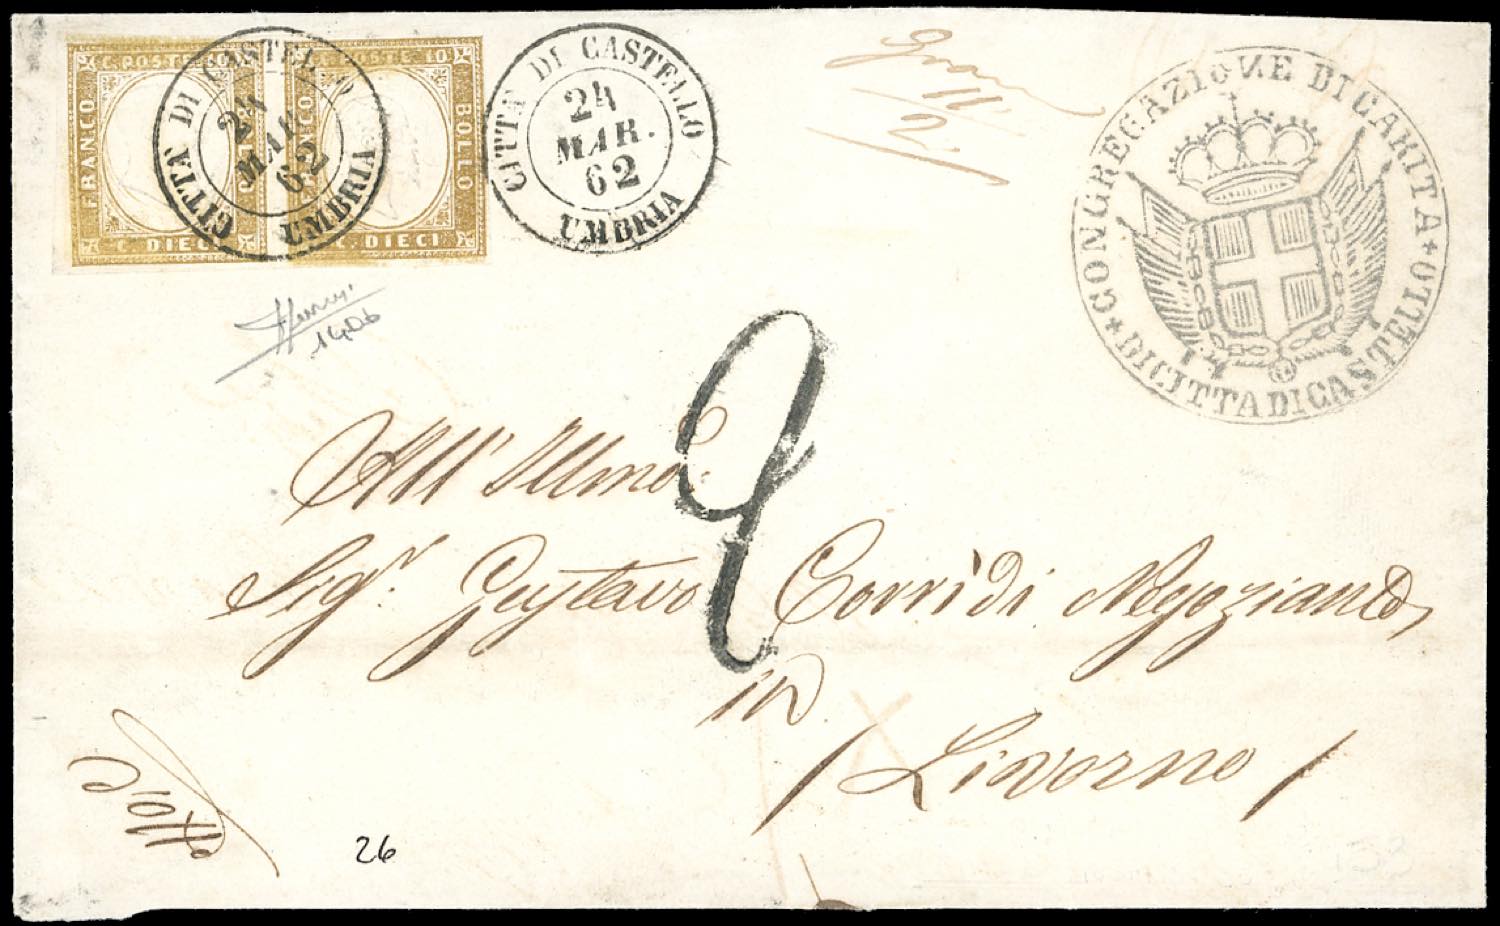 C. POSTE 10
FRANCO
BOLLO
C. DIECI
C. POSTE 10
FRANCO
BOLLO
C. DIECI
CITTA' DI CASTELLO
24
MAR.
62
UMBRIA
CITTA' DI CASTELLO
24
MAR.
62
UMBRIA
CONGREGAZIONE DI CARITA
DI CITTA DI CASTELLO
1406
2
All'Illmo.
Sigr. Gustavo Corridi Negoziante,
in
Livorno
26
153